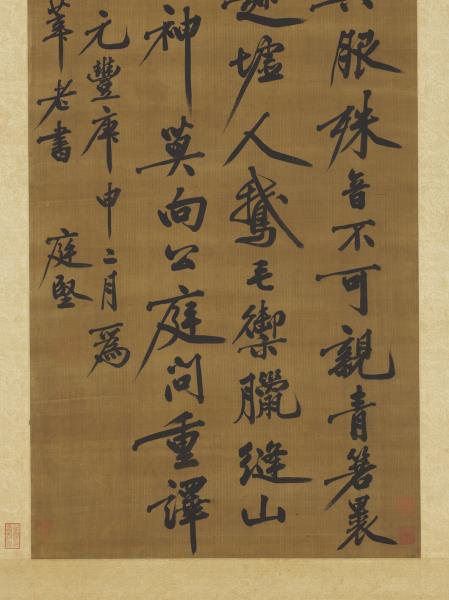 服殊音不可親青箬裹
墟人鵝毛禦臘縫山
神莫向公庭問重譯
元豐庚申二月為
莘老書 庭堅